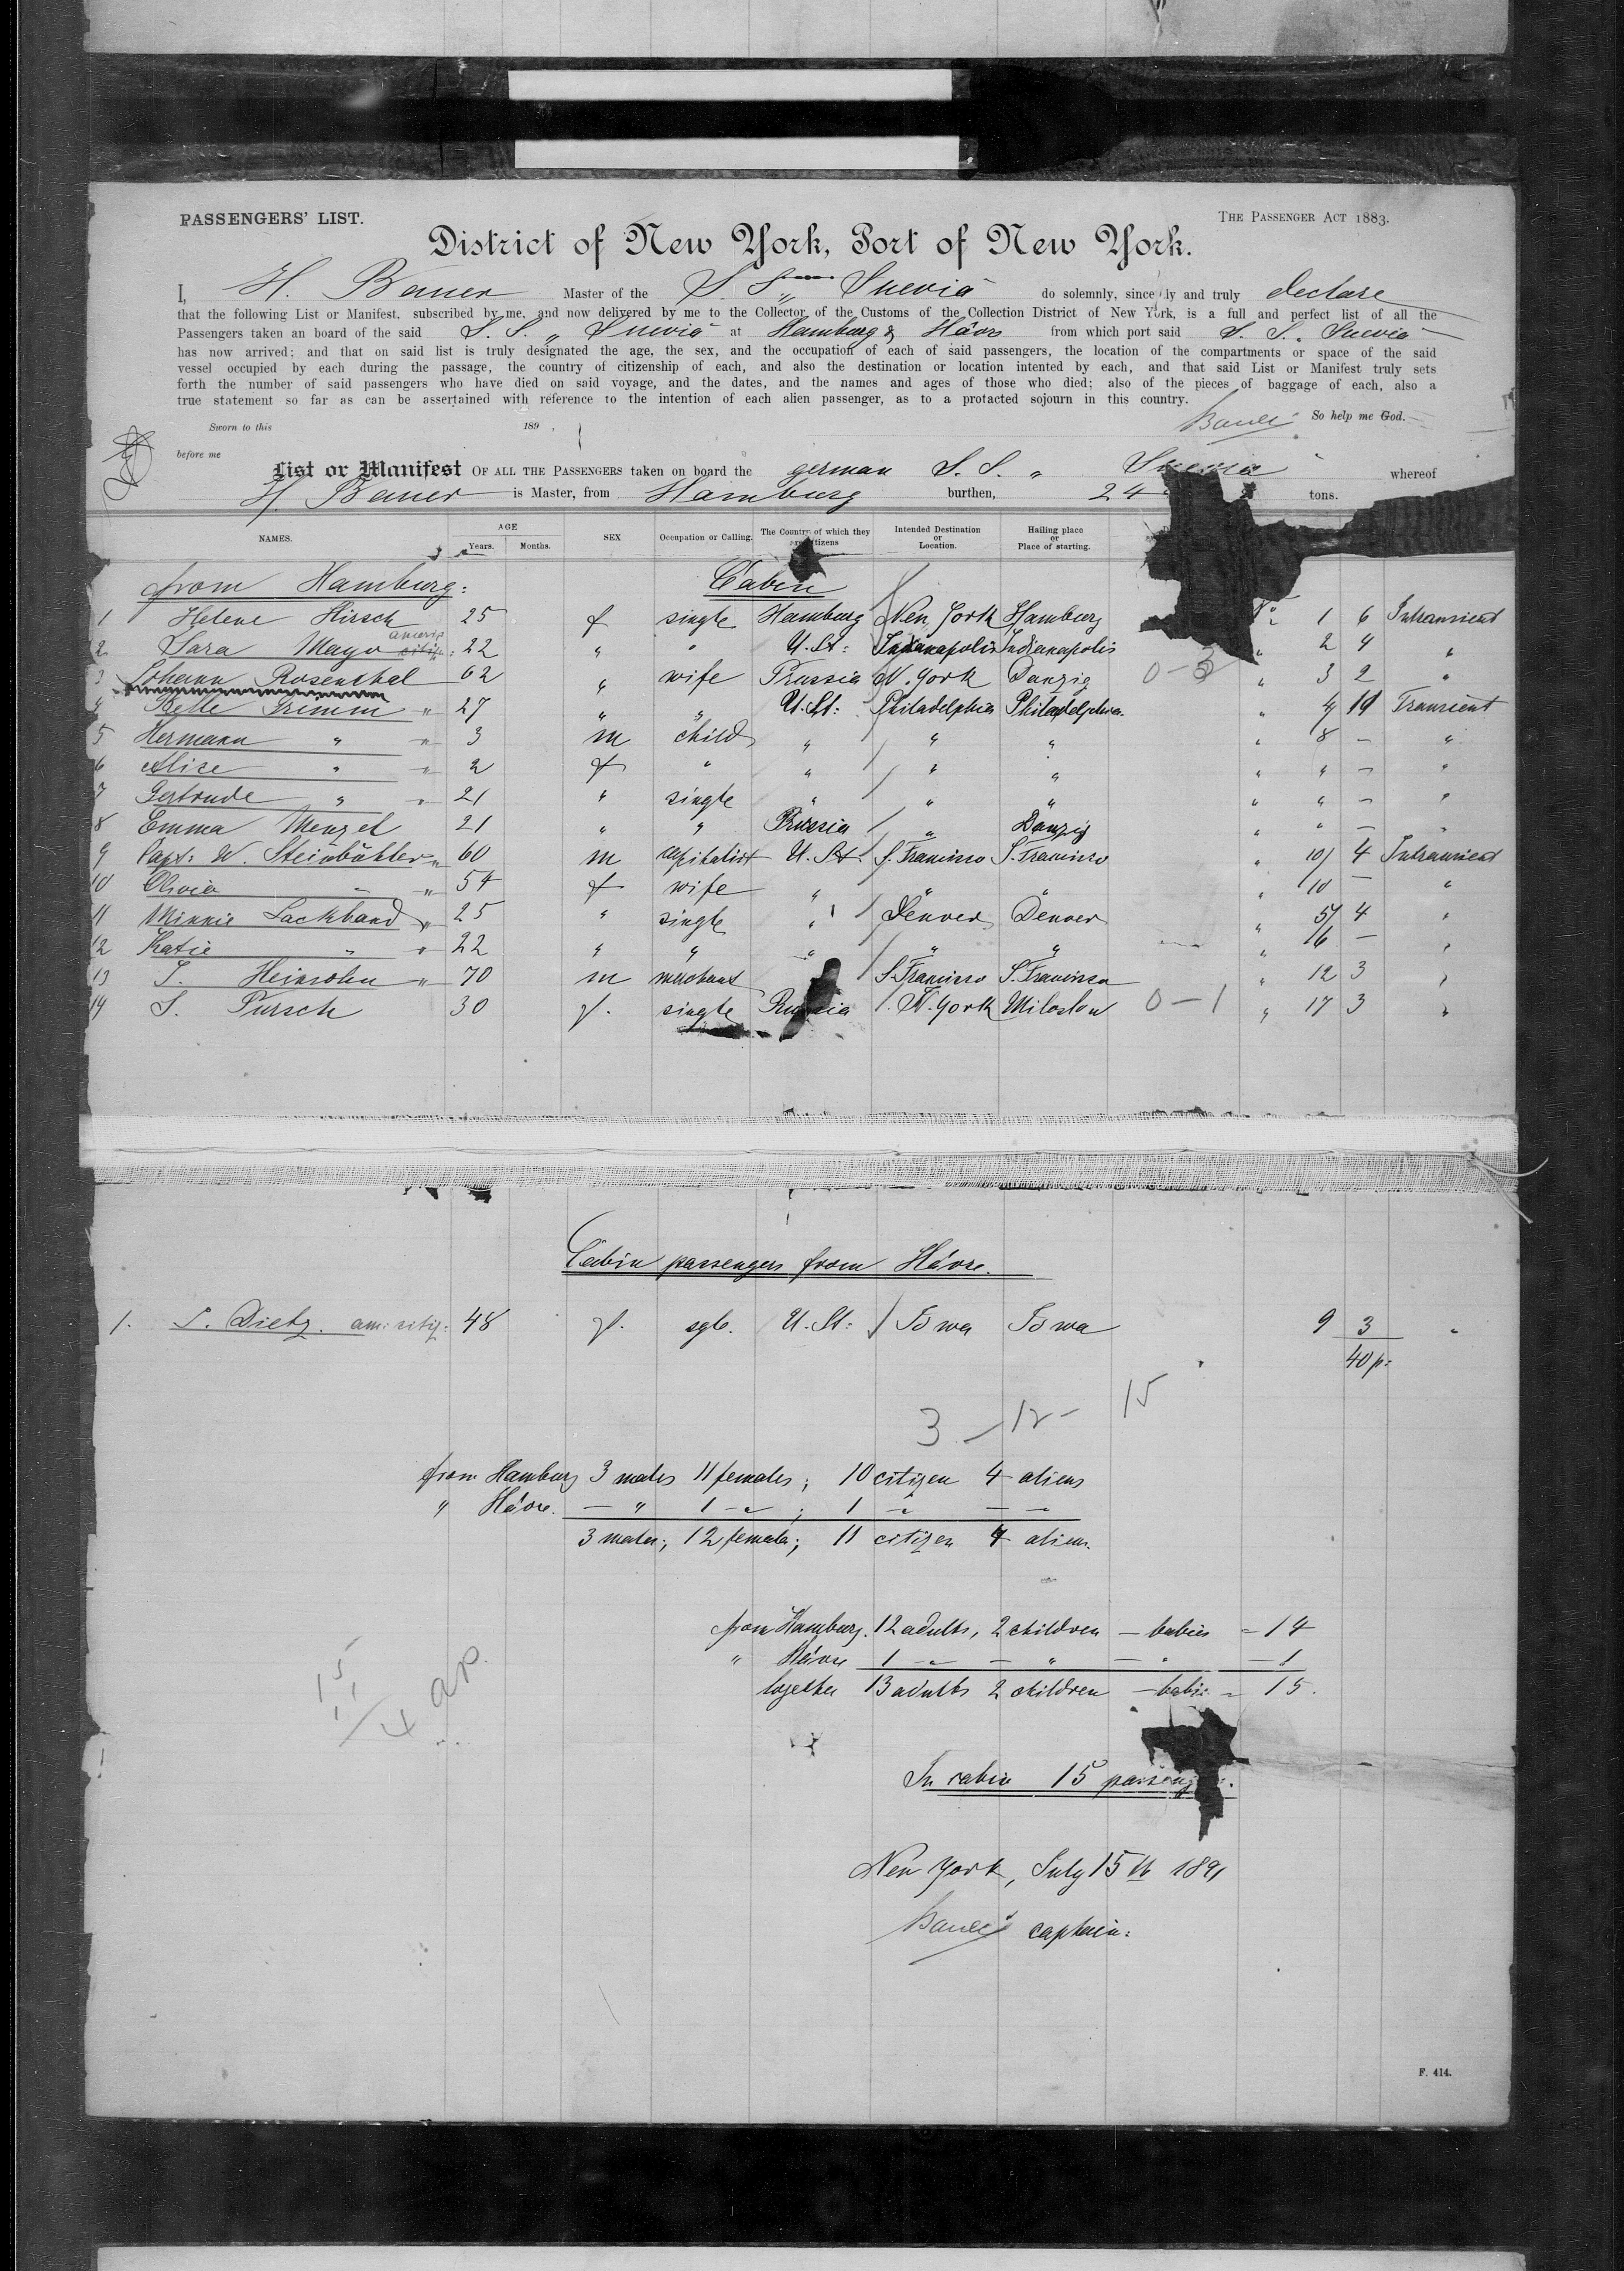 PASSENGERS' LIST.
THE PASSENGER ACT 1883.
District of New York, Port of New York.
I, H. Bauer Master of the S. S. „ Suevia do solemnly, sincerely and truly declare
that the following List or Manifest, subscribed by me, and now delivered by me to the Collector of the Customs of the Collection District of New York, is a full and perfect list of all the
Passengers taken an board of the said S. S. „ Suevia at Hamburg & Hâvre from which port said S. S. „ Suevia
has now arrived; and that on said list is truly designated the age, the sex, and the occupation of each of said passengers, the location of the compartments or space of the said
vessel occupied by each during the passage, the country of citizenship of each, and also the destination or location intented by each, and that said List or Manifest truly sets
forth the number of said passengers who have died on said voyage, and the dates, and the names and ages of those who died; also of the pieces of baggage of each, also a
true statement so far as can be assertained with reference to the intention of each alien passenger, as to a protacted sojourn in this country.
So help me God.
Sworn to this 189 .
before me
List or Manifest OF ALL THE PASSENGERS taken on board the german S. S. „ Suevia whereof
H. Bauer is Master, from Hamburg burthen, 24 tons.
NAMES. AGE Years. Months. SEX Occupation or Calling. The Country of which they are citizens Intended Destination or Location. Hailing place or Place of starting.
from Hamburg: Cabin
1 Helene Hirsch 25 f single Hamburg New York Hamburg 1 6 Intransient
2 Sara Mayo 22 " " U. St: Indianapolis Indianapolis " 2 4 "
3 Johann Rosenthal 62 " wife Prussia N. York Danzig 0-3 " 3 2 "
4 Belle Grimm " 27 " " U. St: Philadelphia Philadelphia " 4 19 Transient
5 Hermann " " 3 m child " " " " 8 — "
6 Alice " " 2 f " " " " " " — "
7 Gertrude " " 21 " single " " " " " — "
8 Emma Menzel 21 " " Prussia " Danzig " " — "
9 Capt: W. Steinbühler " 60 m capitalist U. St. S. Francisco S. Francisco " 10 4 Intransient
10 Olivia " " 54 f wife " " " " 10 — "
11 Minnie Lackband " 25 " single " Denver Denver " 4 "
12 Katie " " 22 " " " " " " 16 — "
13 J. Heinsohn " 70 m merchant S. Francisco S. Francisco " 12 3 "
14 S. Pursch 30 f. single Russia N. York Miloslow 0-1 " 17 3 "
Cabin passengers from Hâvre.
1. S. Dietz. am: citiz: 48 f. sgle. U. St: Iowa Iowa 9 3 "
40 p:
3 — 12 — 15
from Hamburg 3 males 11 females; 10 citizen 4 aliens
" Hâvre. — " 1 — " ; 1 — " — —
3 males; 12 females; 11 citizen 4 aliens.
from Hamburg. 12 adults, 2 children — babies = 14
" Hâvre 1 — " — " — " — 1
together 13 adults 2 children — babies = 15.
15
11
4
In cabin 15 passeng
New York, July 15th 1891
captain:
F. 414.